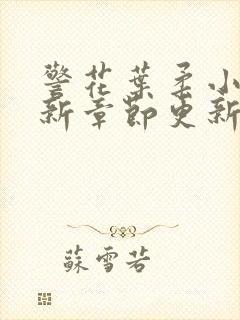 警花葉柔小
新章節更新
蘇雪若